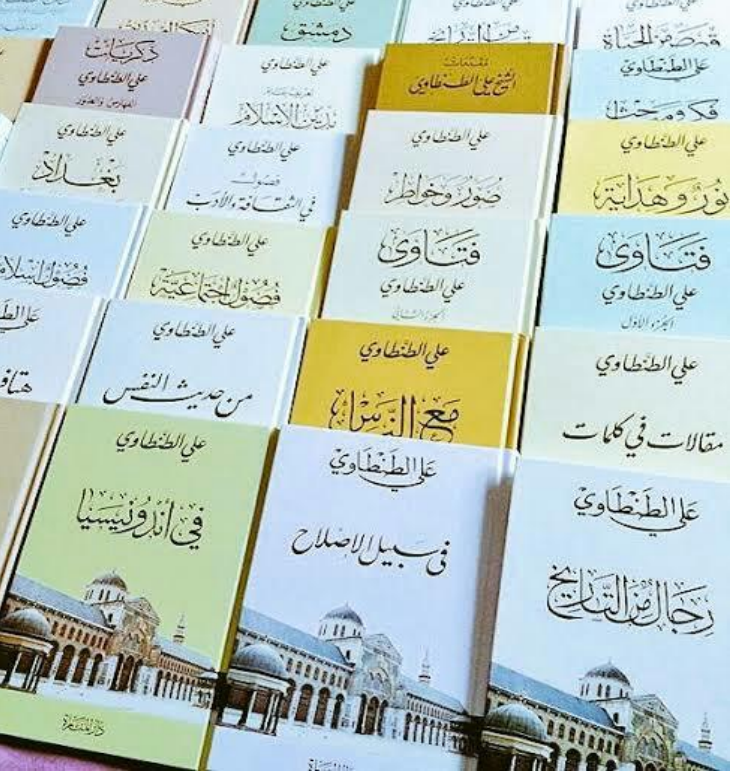 دمشق
من التاريخ
قصص من الحياة
ذكريات
علي الطنطاوي
علي الطنطاوي
تعريف عام
بدين الإسلام
مقدمات
الشيخ علي الطنطاوي
علي الطنطاوي
فكر ومباحث
علي الطنطاوي
بغداد
علي الطنطاوي
فصول
في الثقافة والأدب
علي الطنطاوي
صور وخواطر
علي الطنطاوي
نور وهداية
علي الطنطاوي
فصول إسلا
علي الطنطاوي
فصول اجتماعية
فتاوى
علي الطنطاوي
الجزء الثاني
فتاوى
علي الطنطاوي
الجزء الأول
علي الط
هتاف
علي الطنطاوي
من حديث النفس
علي الطنطاوي
مع الناس
علي الطنطاوي
مقالات في كلمات
علي الطنطاوي
في أندونيسيا
دار المنارة
علي الطنطاوي
في سبيل الإصلاح
علي الطنطاوي
رجال من التاريخ